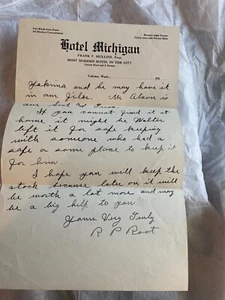 Hotel Michigan
FRANK P. MULLINS, Prop.
MOST MODERN HOTEL IN THE CITY
Yakima, Wash.,
Yakima and he may have it
in our files. Mr
is
our
If you cannot find it at
home it might be Walter
left it for safe keeping
with someone who had a
safe or some place to keep it
for him
I hope you will keep the
stock because later on it will
be worth a lot more and may
be a big help to you
Yours Very Truly
R P Root